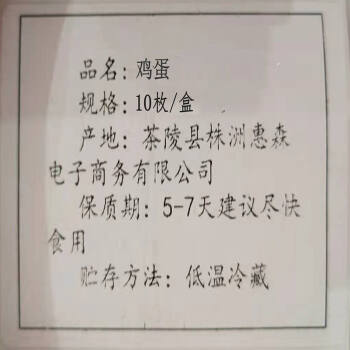 品名：鸡蛋
规格：10枚/盒
产地：茶陵县株洲惠森
电子商务有限公司
保质期：5-7天建议尽快
食用
贮存方法：低温冷藏